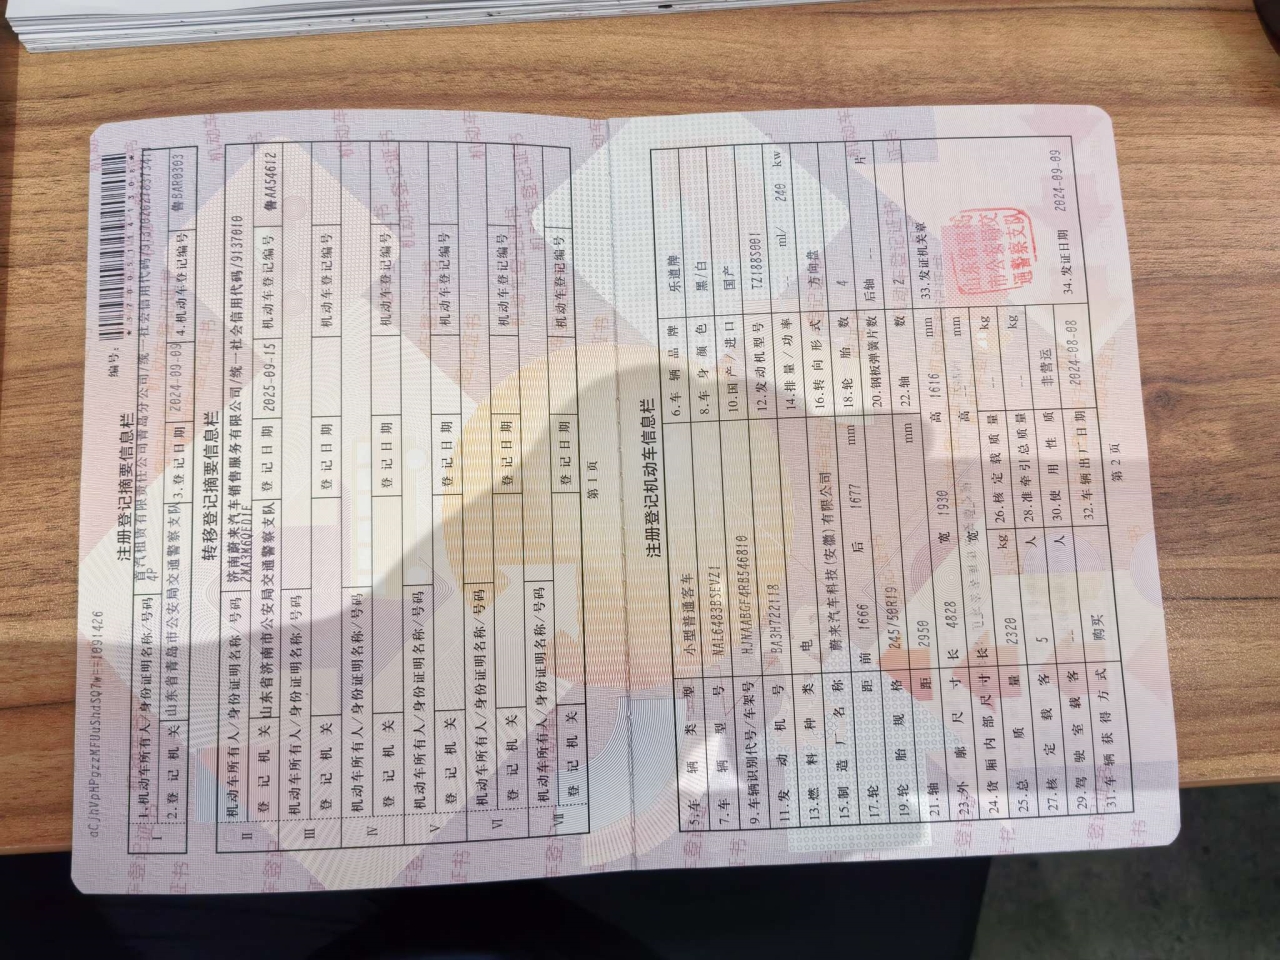 aCJhVpHPgzzMFUuShdSQ7w==1091426
编号:
注册登记摘要信息栏
I
1.机动车所有人/身份证明名称/号码 首汽租赁有限责任公司青岛分公司/统一社会信用代码/
4P
2.登记机关 山东省青岛市公安局交通警察支队 3.登记日期 2024-09-09 4.机动车登记编号 鲁BAR0303
转移登记摘要信息栏
II
机动车所有人/身份证明名称/号码 济南蔚来汽车销售服务有限公司/统一社会信用代码/9137010
2MA3M6QFD1F
登记机关 山东省济南市公安局交通警察支队 登记日期 2025-09-15 机动车登记编号 鲁AA54612
III
机动车所有人/身份证明名称/号码
登记机关 登记日期 机动车登记编号
IV
机动车所有人/身份证明名称/号码
登记机关 登记日期 机动车登记编号
V
机动车所有人/身份证明名称/号码
登记机关 登记日期 机动车登记编号
VI
机动车所有人/身份证明名称/号码
登记机关 登记日期 机动车登记编号
VII
机动车所有人/身份证明名称/号码
登记机关 登记日期 机动车登记编号
第 1 页
注册登记机动车信息栏
5.车辆类型 小型普通客车 6.车辆品牌 乐道牌
7.车辆型号 NAL6483BSEVZ1 8.车身颜色 黑/白
9.车辆识别代号/车架号 HJNAABGF4RB546810 10.国产/进口 国产
11.发动机号 BA3H722118 12.发动机型号 TZ188S001
13.燃料种类 电 14.排量/功率 -- ml/ 240 kw
15.制造厂名称 蔚来汽车科技(安徽)有限公司 16.转向形式 方向盘
17.轮距 前 1666 后 1677 mm 18.轮胎数 4
19.轮胎规格 245/50R19 20.钢板弹簧片数 后轴 -- 片
21.轴距 2950 mm 22.轴数 2
23.外廓尺寸 长 4828 宽 1930 高 1616 mm
33.发证机关章
24.货厢内部尺寸 长 宽 高 mm
25.总质量 2320 kg 26.核定载质量 -- kg
27.核定载客 5 人 28.准牵引总质量 -- kg
29.驾驶室载客 -- 人 30.使用性质 非营运
31.车辆获得方式 购买 32.车辆出厂日期 2024-08-08 34.发证日期 2024-09-09
第 2 页